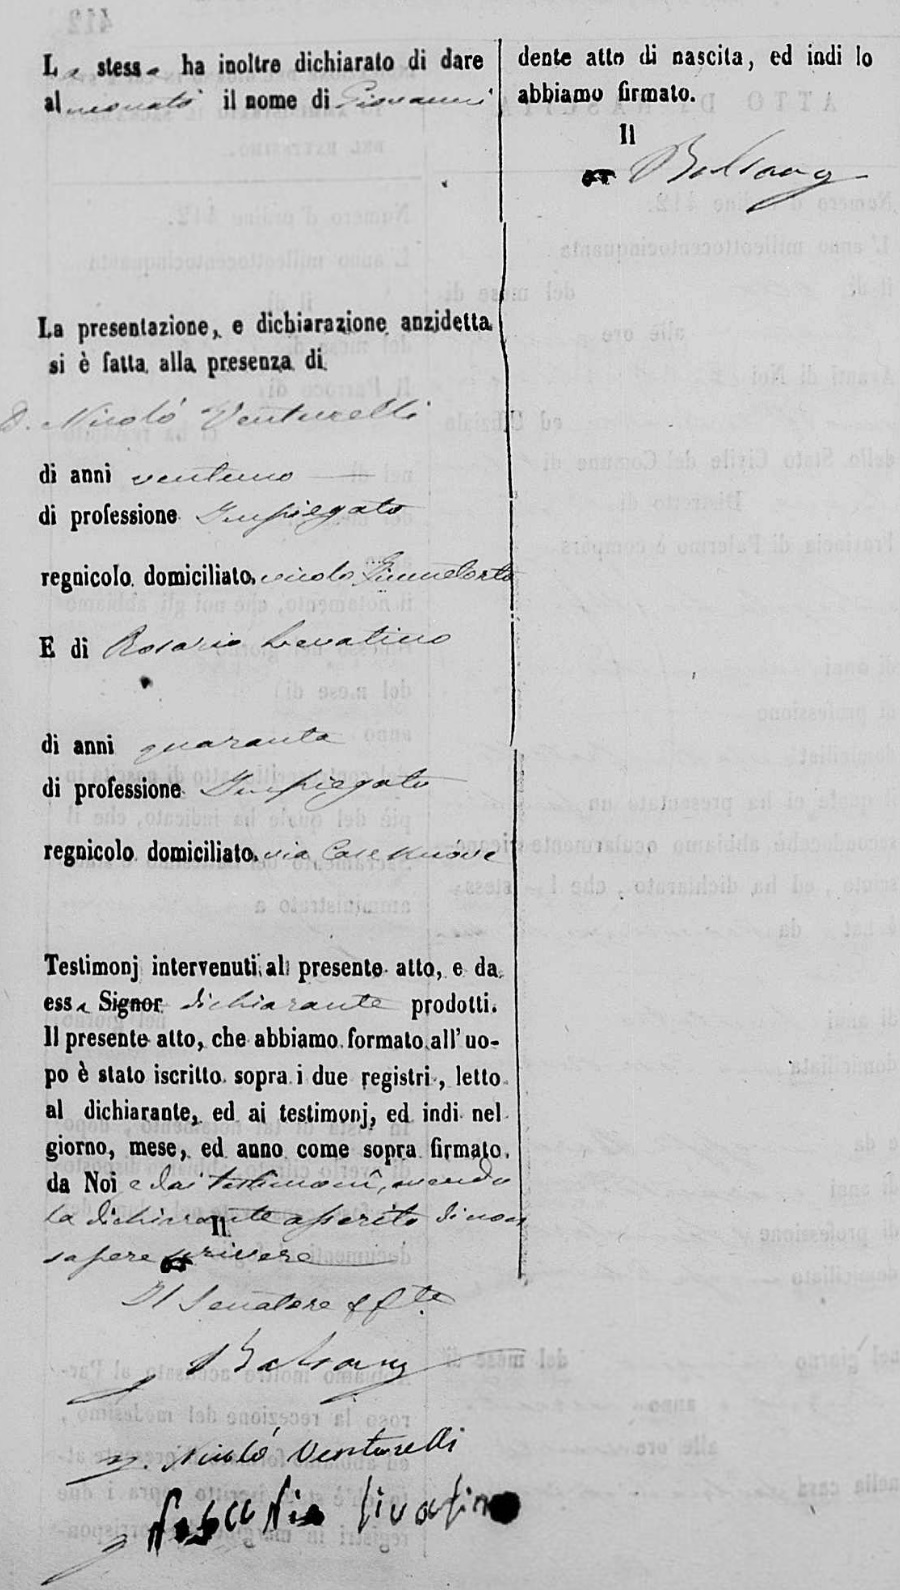 L a stess a ha inoltre dichiarato di dare
al neonato il nome di Giovanni
La presentazione, e dichiarazione anzidetta
si è fatta alla presenza di
D. Nicolò Venturelli
di anni ventuno
di professione Impiegato
regnicolo domiciliato vicolo
E di Rosario Livatino
di anni quaranta
di professione Impiegato
regnicolo domiciliato via Case nuove
Testimonj intervenuti al presente atto, e da
ess a Signor dichiarante prodotti.
Il presente atto, che abbiamo formato all'uo-
po è stato iscritto sopra i due registri, letto
al dichiarante, ed ai testimonj, ed indi nel
giorno, mese, ed anno come sopra firmato
da Noi e dai testimonî, avendo
la dichiarante asserito di non
Il
sapere scrivere
Il Senatore ff.te
Balsano
Nicolò Venturelli
Rosario Livatino
dente atto di nascita, ed indi lo
abbiamo firmato.
Il
Balsano